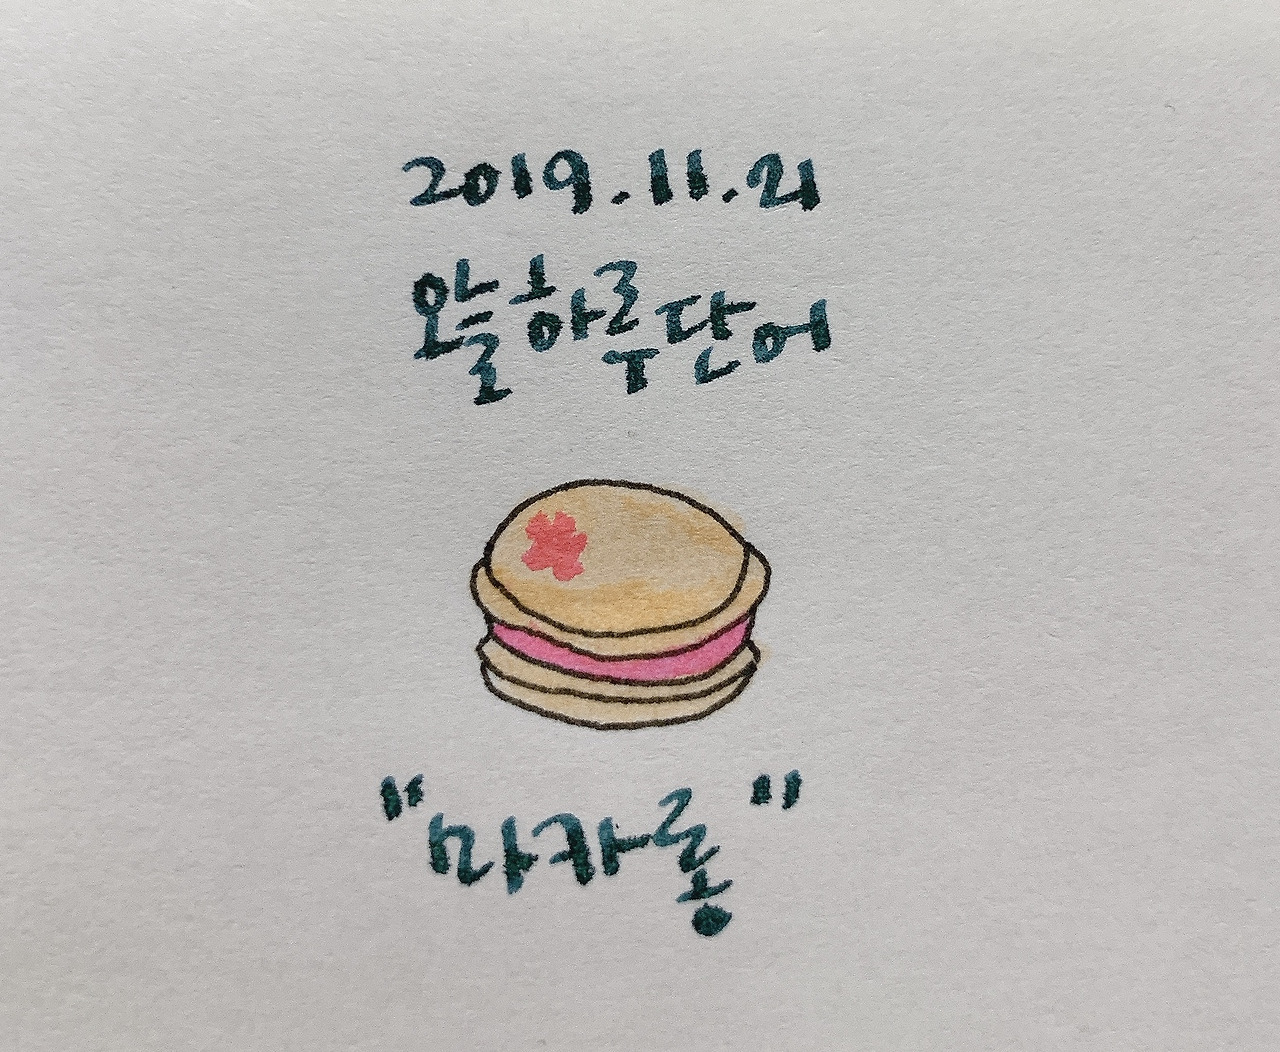 2019.11.21
왈하루단어
"마카롱"